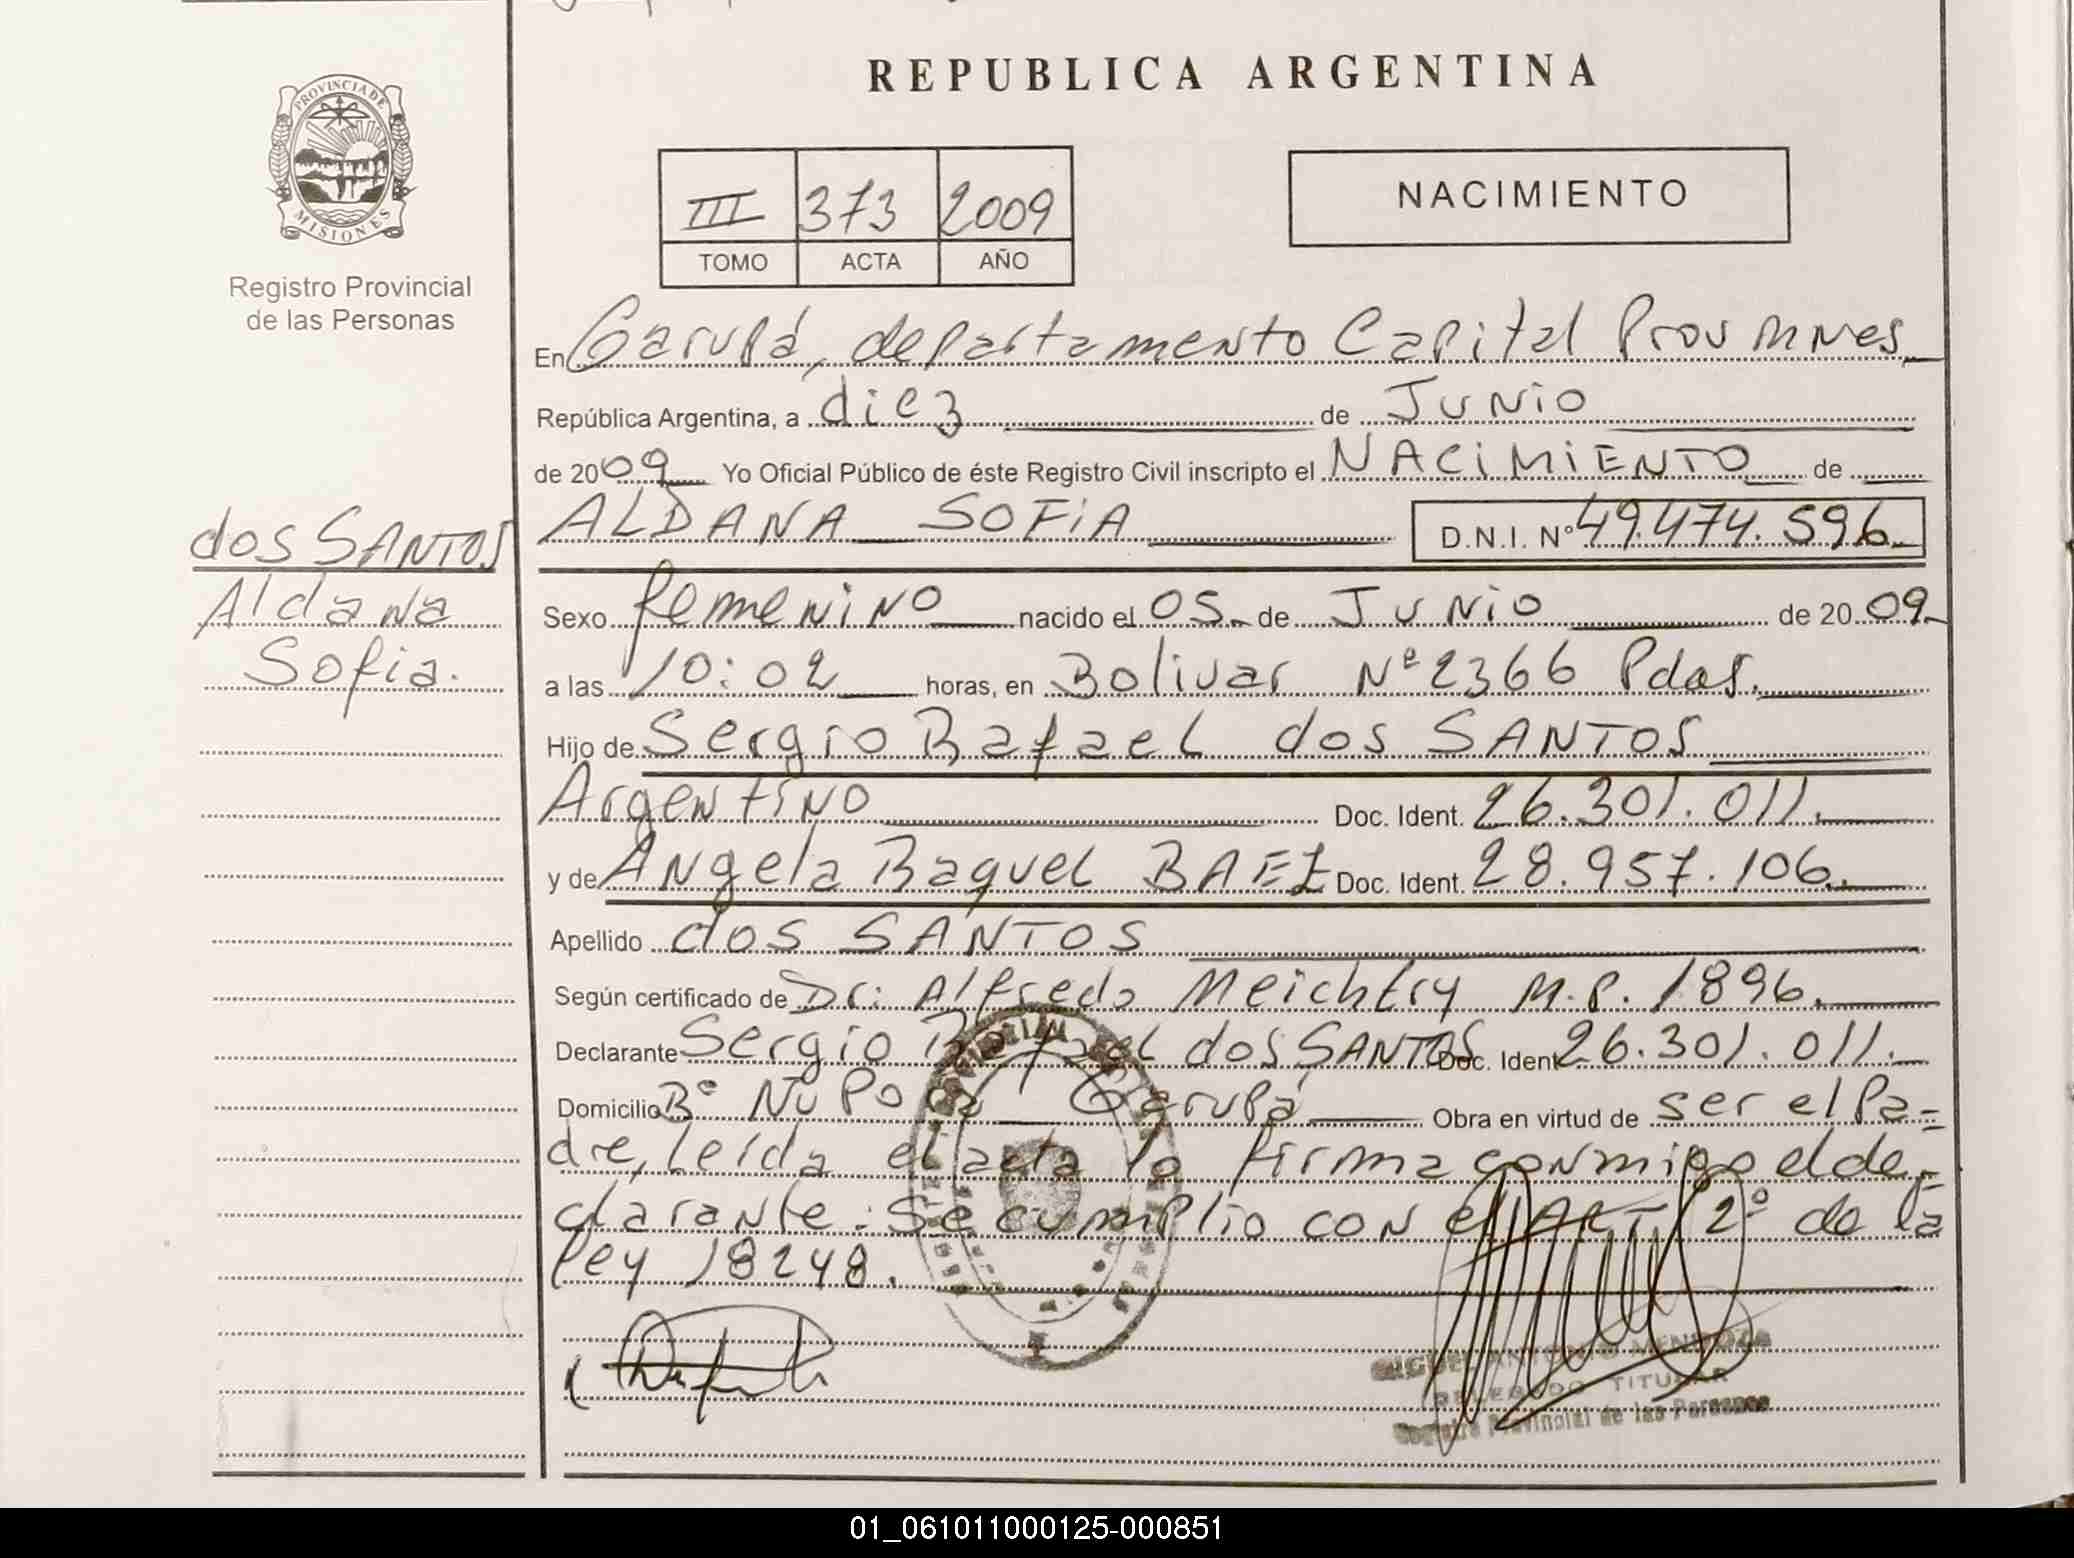 REPUBLICA ARGENTINA
PROVINCIA DE
MISIONES
Registro Provincial
de las Personas
III 373 2009
TOMO ACTA AÑO
NACIMIENTO
En Garupá, departamento Capital Prov Mnes,
República Argentina, a diez de Junio
de 2009 Yo Oficial Público de éste Registro Civil inscripto el NACIMIENTO de
ALDANA SOFIA D.N.I. Nº 49.474.596.
dos SANTOS
Aldana
Sofia.
Sexo femenino nacido el 05. de Junio de 2009.
a las 10:02 horas, en Bolivar Nº 2366 Pdas.
Hijo de Sergio Rafael dos SANTOS
Argentino Doc. Ident. 26.301.011.
y de Angela Raquel BAEZ Doc. Ident. 28.957.106.
Apellido dos SANTOS
Según certificado de Dr: Alfredo Meichtry M.P. 1896.
Declarante Sergio Rafael dos SANTOS Doc. Ident 26.301.011.
Domicilio Bº Ñu Pora Garupá Obra en virtud de ser el Pa=
dre, Leída el acta la firma conmigo el de=
clarante. Se cumplio con el ART 2º de la
Ley 18248.
MIGUEL ANTONIO MENDOZA
DELEGADO TITULAR
Registro Provincial de las Personas
01_061011000125-000851